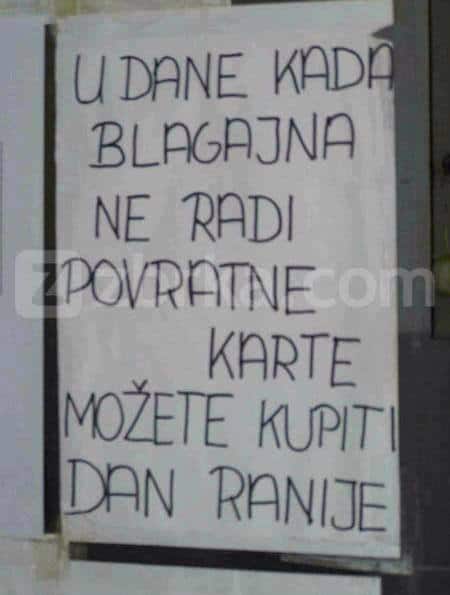 U DANE KADA
BLAGAJNA
NE RADI
POVRATNE
KARTE
MOŽETE KUPITI
DAN RANIJE